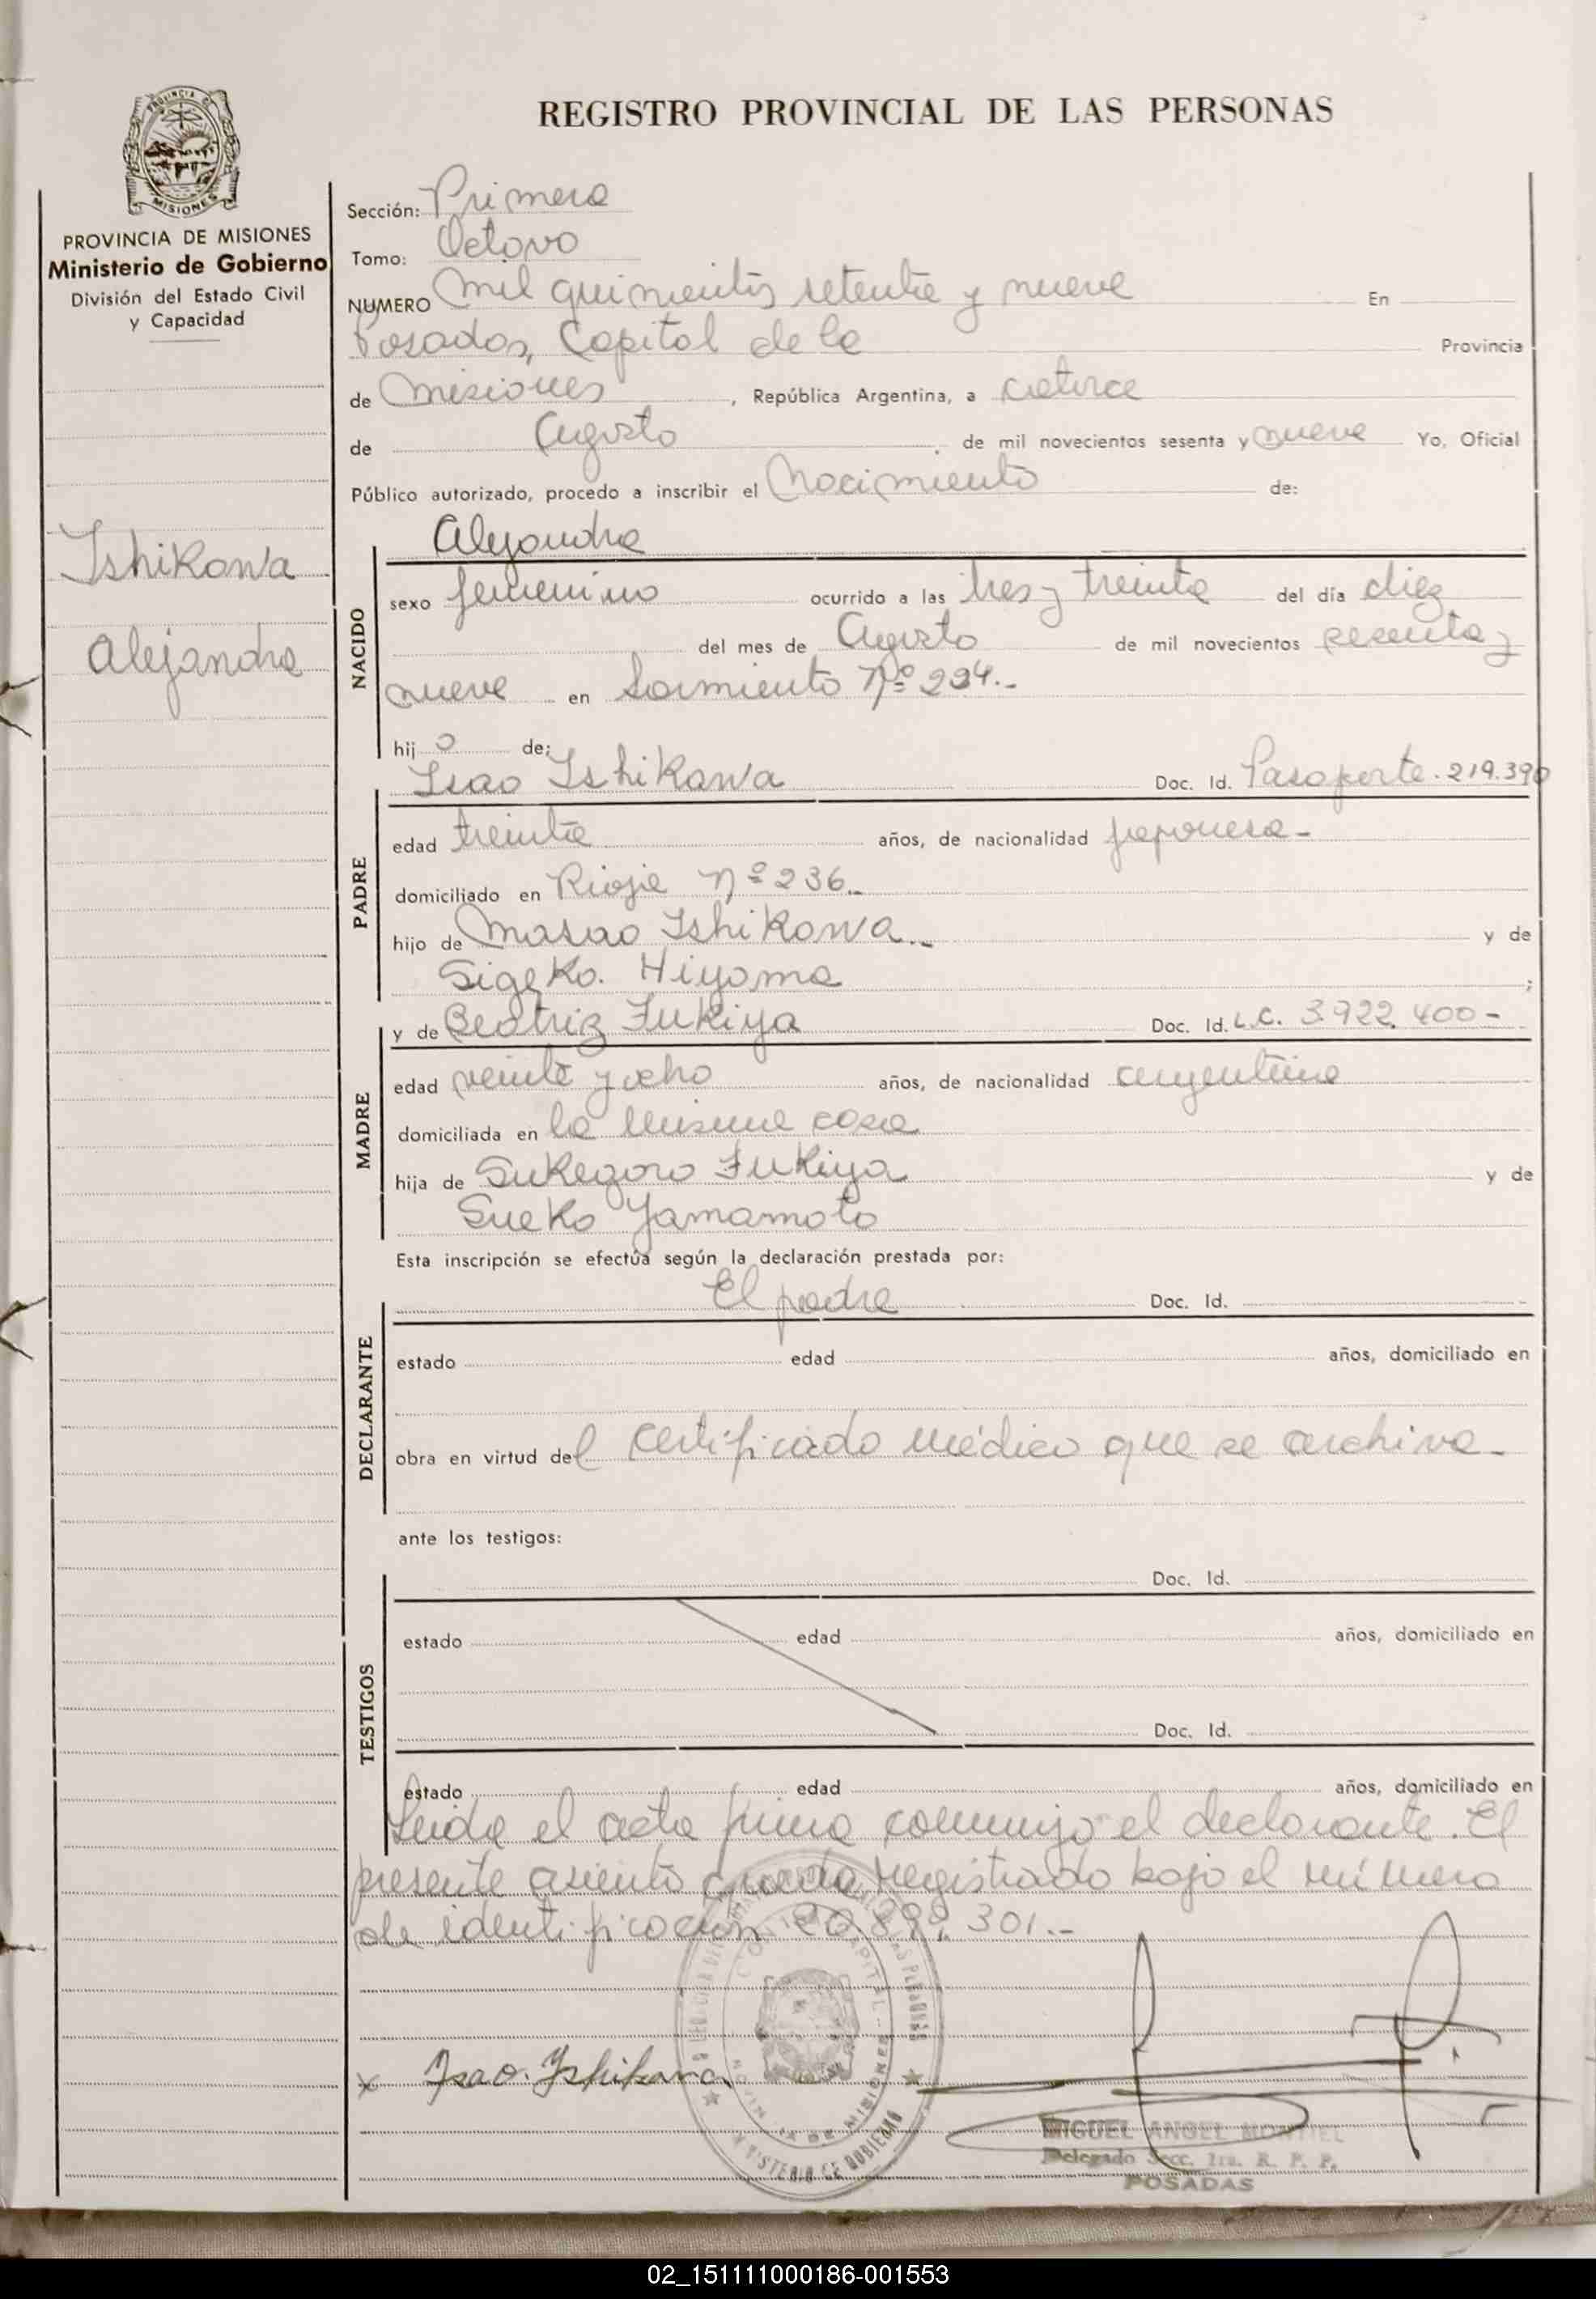 REGISTRO PROVINCIAL DE LAS PERSONAS
PROVINCIA DE
MISIONES
PROVINCIA DE MISIONES
Ministerio de Gobierno
División del Estado Civil
y Capacidad
Ishikawa
Alejandra
Sección: Primera
Tomo: Octavo
NUMERO mil quinientos setenta y nueve En
Posadas, Capital de la Provincia
de Misiones, República Argentina, a catorce
de Agosto de mil novecientos sesenta y nueve Yo, Oficial
Público autorizado, procedo a inscribir el Nacimiento de:
Alejandra
NACIDO
sexo femenino ocurrido a las tres y treinta del día diez
del mes de Agosto de mil novecientos sesenta y
nueve en Sarmiento Nº 294.-
hij a de:
Isao Ishikawa Doc. Id. Pasaporte. 219.390
PADRE
edad treinta años, de nacionalidad japonesa -
domiciliado en Rioja Nº 236.-
hijo de Masao Ishikawa.- y de
Sigeko. Hiyama ;
y de Beatriz Fukiya Doc. Id. L.C. 3.922.400-
MADRE
edad veinte y ocho años, de nacionalidad argentina
domiciliada en la misma casa
hija de Sukegoro Fukiya y de
Sueko Yamamoto
Esta inscripción se efectúa según la declaración prestada por:
El padre Doc. Id.
DECLARANTE
estado edad años, domiciliado en
obra en virtud del certificado médico que se archiva-
ante los testigos:
Doc. Id.
TESTIGOS
estado edad años, domiciliado en
Doc. Id.
estado edad años, domiciliado en
Leida el acta firma conmigo el declarante. El
presente asiento queda registrado bajo el número
de identificación 20.899.301.-
x Isao. Ishikawa
MIGUEL ANGEL MONTIEL
Delegado Secc. 1ra. R. P. P.
POSADAS
CAPITAL
MINISTERIO DE GOBIERNO
02_151111000186-001553